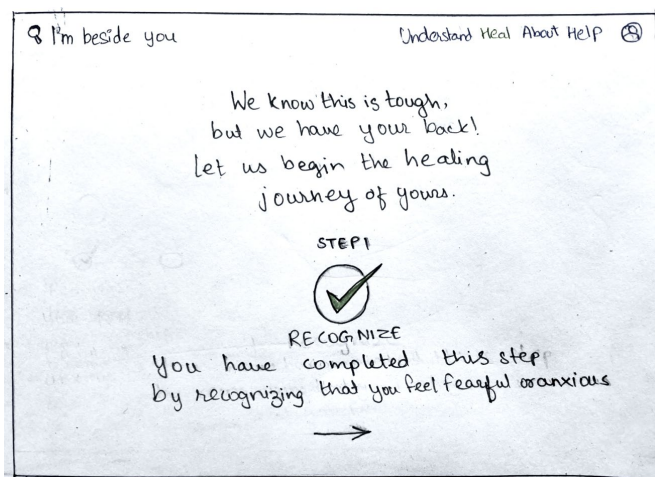 I'm beside you
Understand Heal About Help
We know this is tough,
but we have your back!
let us begin the healing
journey of yours.
STEP 1
RECOGNIZE
You have completed this step
by recognizing that you feel fearful or anxious